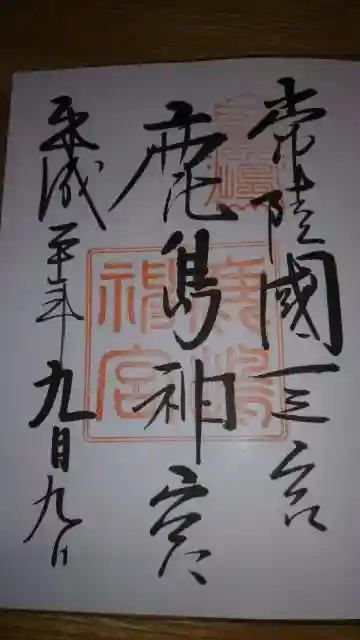 常陸國一之宮
鹿島神宮
平成二十年九月九日
鹿嶋神宮